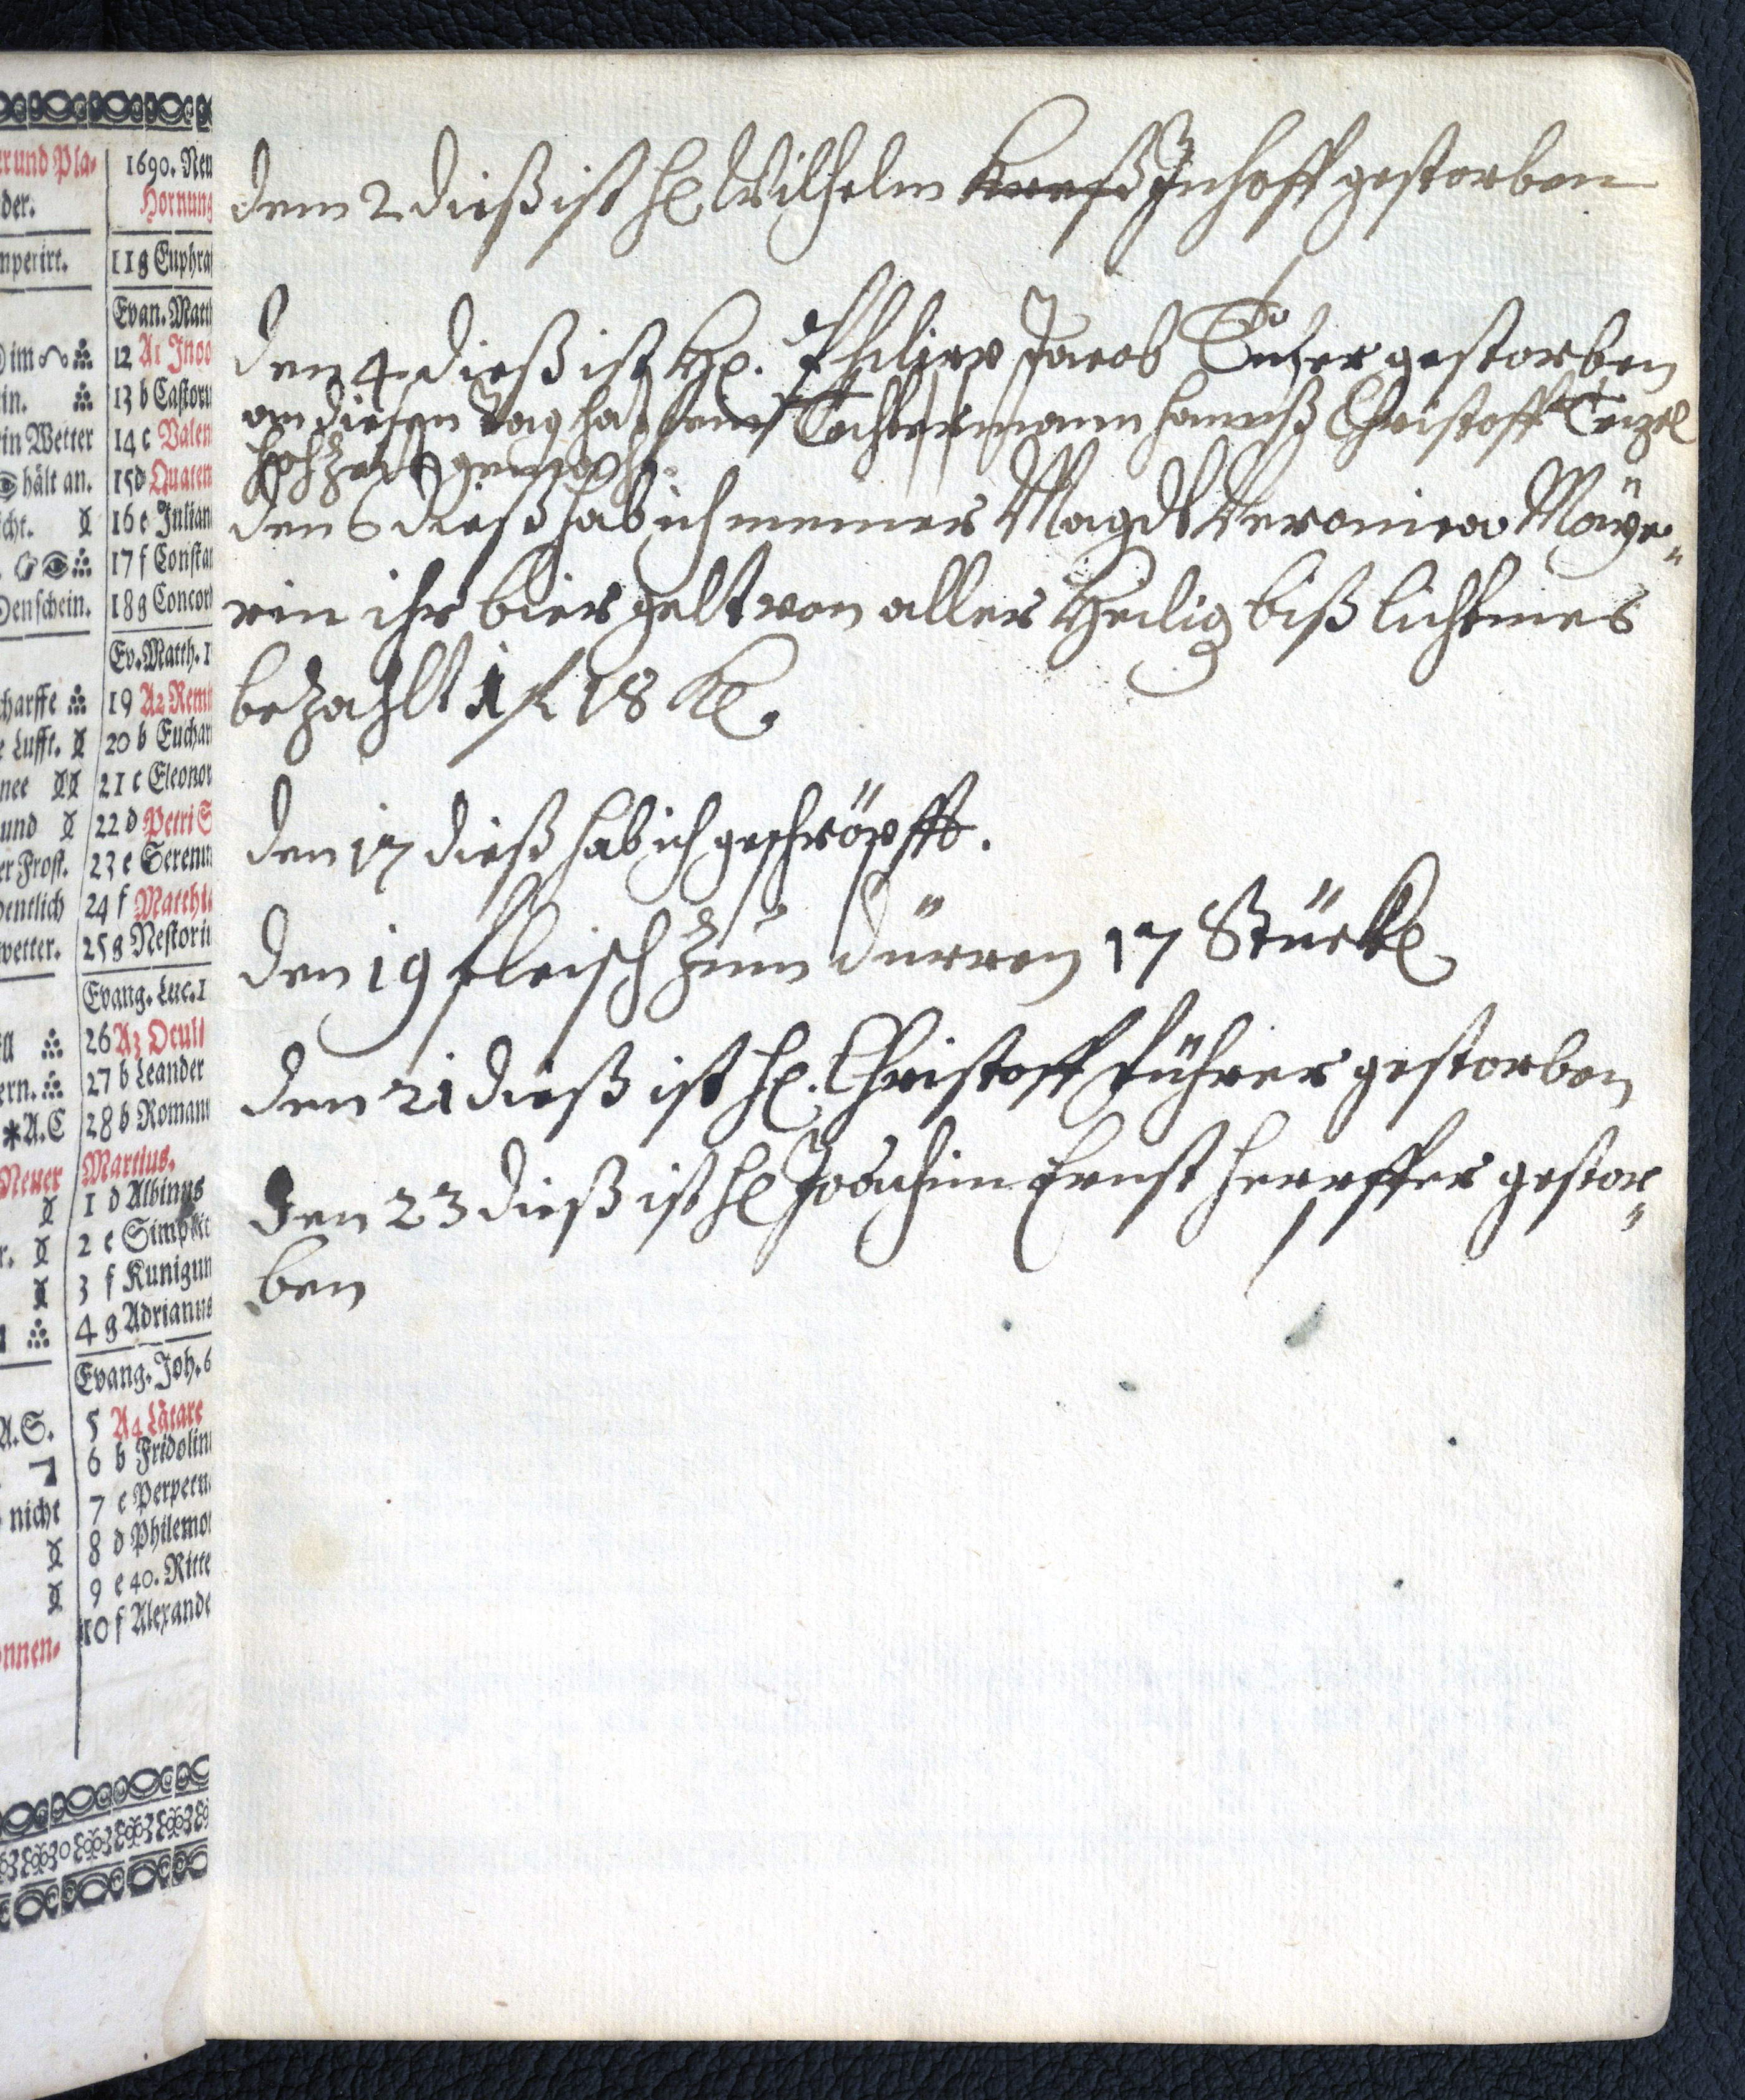 er und Pla-
der.
mperirt.
im
in.
in Wetter
hält an.
cht.
Denschein.
charffe
e Lufft.
nee
und
er Frost.
dentlich
wetter.
ern.
*A.C
Neuer
A.S.
nicht
onnen-
1690. Neu
Hornung
11 g Euphra
Evan. Matt
12 A1 Invo
13 b Castoru
14 c Valen
15 d Quatem
16 e Julian
17 f Constan
18 g Concord
Ev. Matth. 1
19 A2 Remi
20 b Euchar
21 c Eleonor
22 d Petri S
23 e Serenu
24 f Matthi
25 g Nestoriu
Evang. Luc. 1
26 A3 Oculi
27 b Leander
28 b Romanu
Martius.
1 d Albinus
2 e Simplic
3 f Kunigun
4 g Adrianus
Evang. Joh. 6
5 A4 Lätare
6 b Fridolin
7 c Perpetu
8 d Philemon
9 e 40. Ritte
10 f Alexande
dem 2 dieß ist H. Wilhelm Kreß Imhoff gestorben
den 4 dieß ist H. Philipp Jacob Tucher gestorben
an diesen Tag hat sein Tochtermann Hannß Christoff Tezel
Hochzeit gemacht.
den 6 dieß hab ich meiner Magdt Veronica Mäye=
rin ihr biergelt von aller Heilig biß lichtmes
bezahlt 1 fl 18 K.
den 17 dieß hab ich geschröpfft.
den 19 fleisch zum dürren 17 Stück
den 21 dieß ist H. Christoff Führer gestorben
den 23 dieß ist H Joachim Ernst gestor=
ben